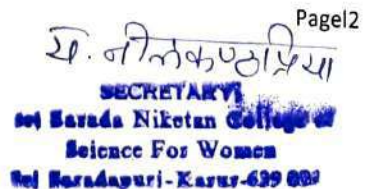 Page12
य. नीलकण्ठप्रिया
SECRETARY
Sri Sarada Niketan College of
Science For Women
Sri Saradapuri-Karur-639 002